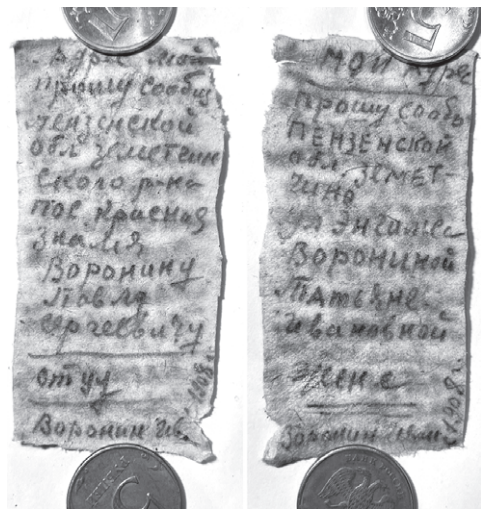 Адрес мой
прошу сообщ
пензенской
обл земетчин
ского р-на
пос. Красная
Знамя
Воронину
Павлу
ергеевичу
отцу
Воронин Ив.
1908 г.
мой адрес
прошу сообь
ПЕНЗЕНСКОЙ
обл ЗЕМЕТ-
чино
ул Энгильса
Ворониной
Татьяне
Ивановной
жене
Воронин Иван
1908 г.